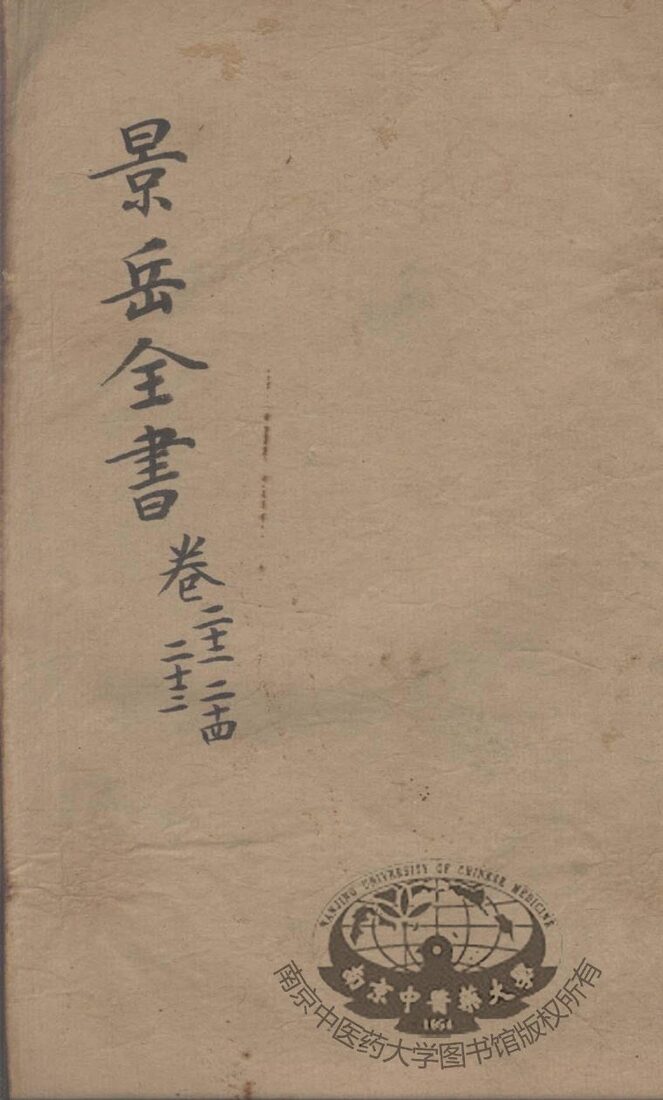 景岳全書
卷
二十二 二十四
二十三
NANJING UNIVERSITY OF CHINESE MEDICINE
南京中醫藥大學
1954
南京中医药大学图书馆版权所有